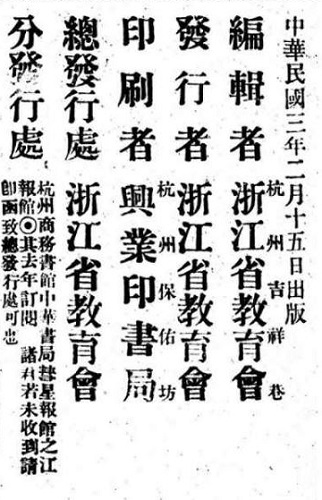 中華民國三年二月十五日出版
編輯者 浙江省教育會
杭州吉祥巷
發行者 浙江省教育會
印刷者 興業印書局
杭州保佑坊
總發行處 浙江省教育會
分發行處
杭州商務書館中華書局彗星報館之江
報館◎其去年訂閱 諸君若未收到請
卽函致總發行處可也